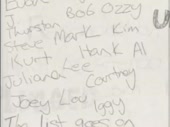 J. BOB OZZY
Thurston
Steve Mark Kim
Kurt Hank Al
Juliana Lee Courtney
Joey Lou Iggy
The list goes on